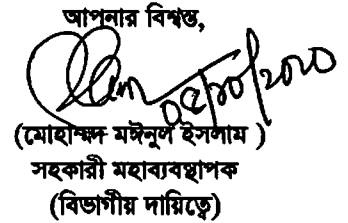 আপনার বিশ্বস্ত,
০৫/১০/২০২০
(মোহাম্মদ মঈনুল ইসলাম )
সহকারী মহাব্যবস্থাপক
(বিভাগীয় দায়িত্বে)